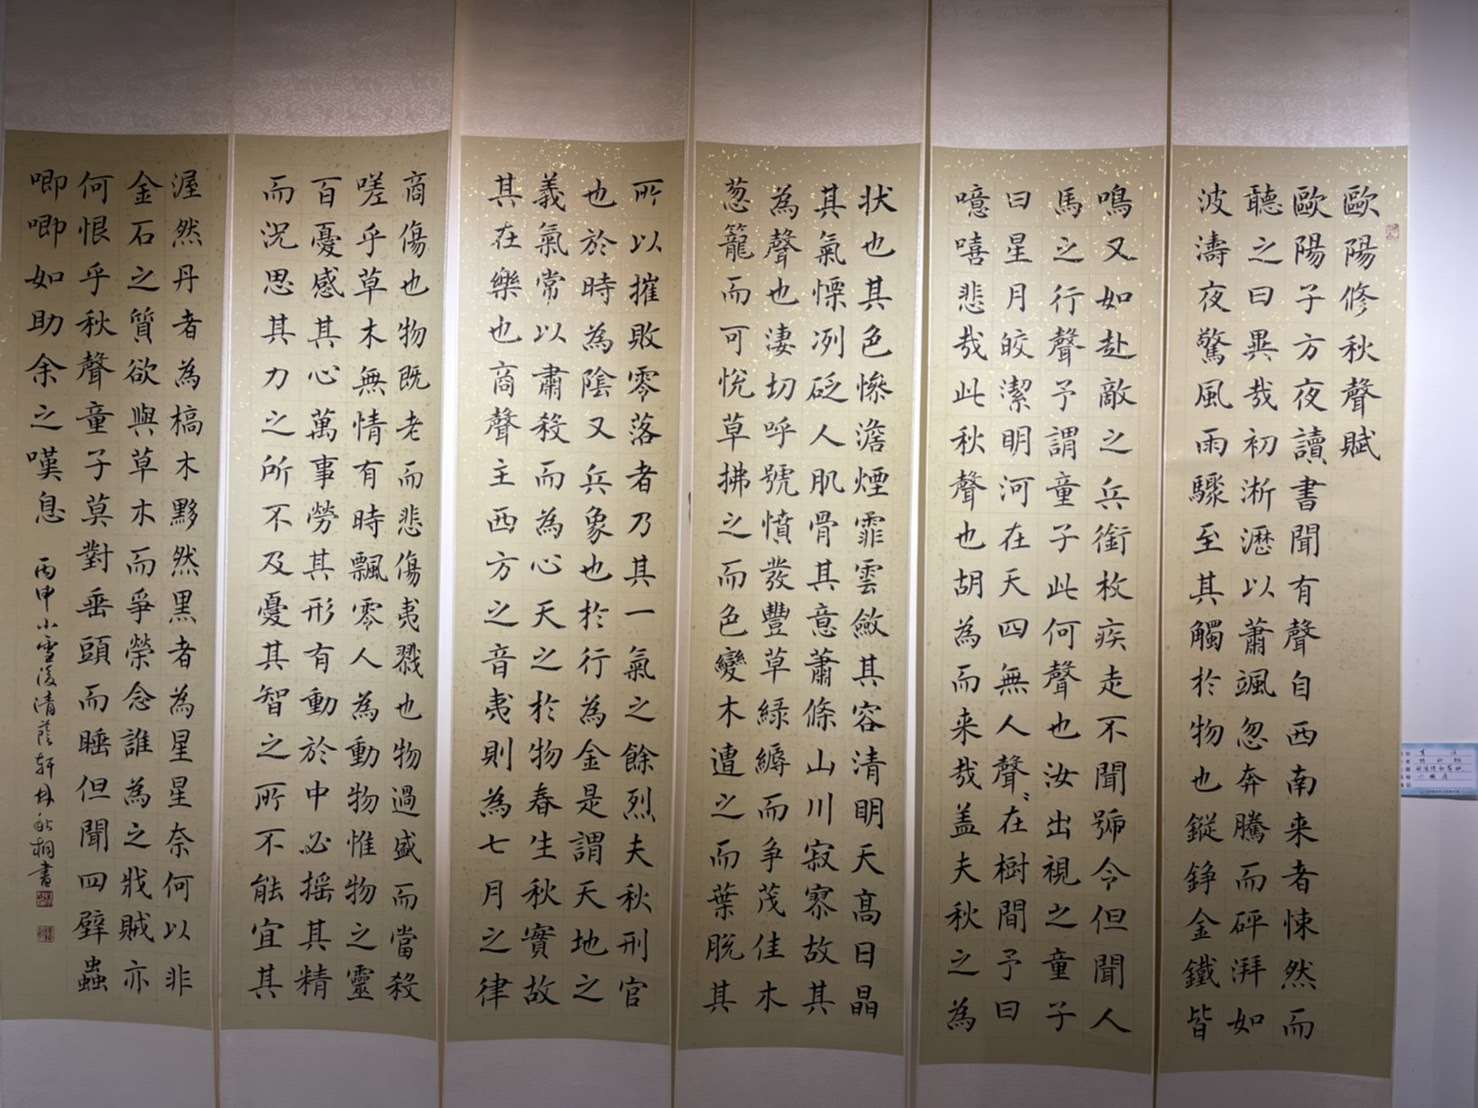 歐陽修秋聲賦
歐陽子方夜讀書聞有聲自西南来者悚然而
聽之曰異哉初淅瀝以蕭颯忽奔騰而砰湃如
波濤夜驚風雨驟至其觸於物也鏦錚金鐵皆
鳴又如赴敵之兵銜枚疾走不聞號令但聞人
馬之行聲予謂童子此何聲也汝出視之童子
曰星月皎潔明河在天四無人聲〻在樹間予曰
噫嘻悲哉此秋聲也胡為而来哉盖夫秋之為
状也其色慘澹煙霏雲斂其容清明天高日晶
其氣慄冽砭人肌骨其意蕭條山川寂寥故其
為聲也淒切呼號憤發豐草綠縟而爭茂佳木
葱籠而可悅草拂之而色變木遭之而葉脫其
所以摧敗零落者乃其一氣之餘烈夫秋刑官
也於時為陰又兵象也於行為金是謂天地之
義氣常以肅殺而為心天之於物春生秋實故
其在樂也商聲主西方之音夷則為七月之律
商傷也物既老而悲傷夷戮也物過盛而當殺
嗟乎草木無情有時飄零人為動物惟物之靈
百憂感其心萬事勞其形有動於中必摇其精
而況思其力之所不及憂其智之所不能宜其
渥然丹者為槁木黟然黑者為星星奈何以非
金石之質欲與草木而爭榮念誰為之戕賊亦
何恨乎秋聲童子莫對垂頭而睡但聞四壁蟲
唧唧如助余之嘆息 丙申小雪後清蔭軒林秋桐書